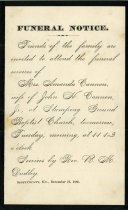 FUNERAL NOTICE.
Friends of the family are
invited to attend the funeral
services of
Mrs. Amanda Cannon,
wife of John H. Cannon,
Jr., at Stamping Ground
Baptist Church, tomorrow,
Tuesday, morning, at 11 1-2
o'clock
Services by Rev. R. M.
Dudley.
Ky., December